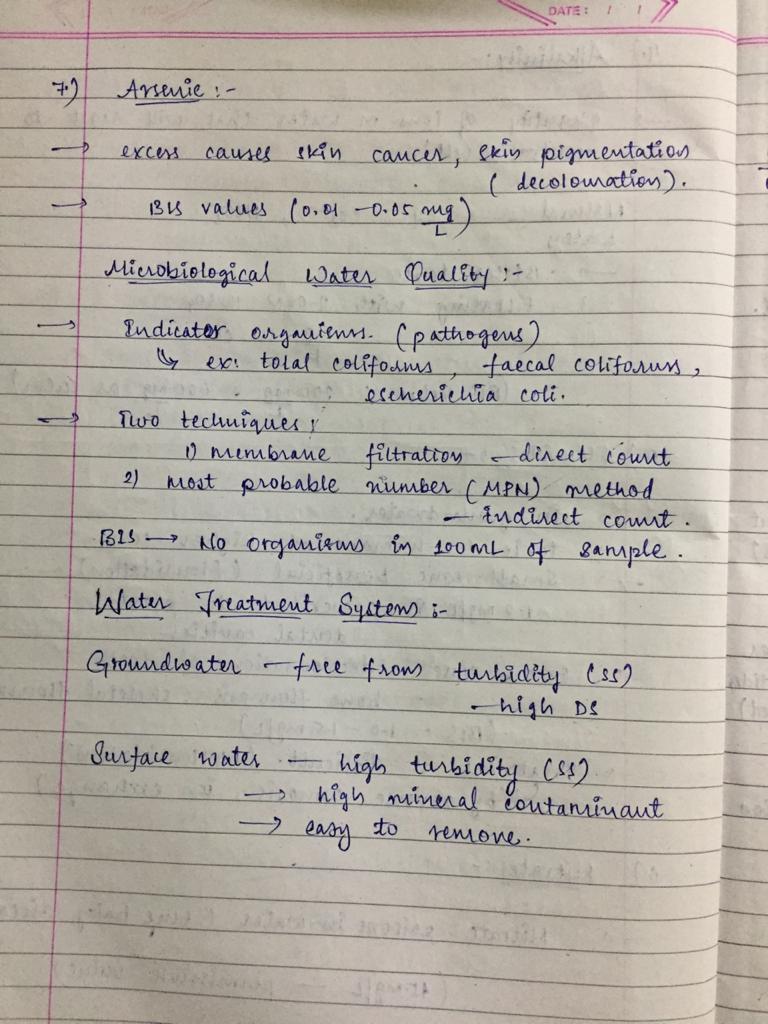 DATE: / /
7.) Arsenic :-
→ excess causes skin cancer, skin pigmentation
(decolouration).
→ BIS values (0.01 - 0.05 mg/L)
Microbiological Water Quality :-
→ Indicator organisms. (pathogens)
↳ ex: total coliforms, faecal coliforms,
escherichia coli.
→ Two techniques;
1) membrane filtration - direct count
2) most probable number (MPN) method
- indirect count.
BIS → No organisms in 100mL of sample.
Water Treatment Systems :-
Groundwater - free from turbidity (SS)
- high DS
Surface water - high turbidity (SS)
→ high mineral contaminant
→ easy to remove.